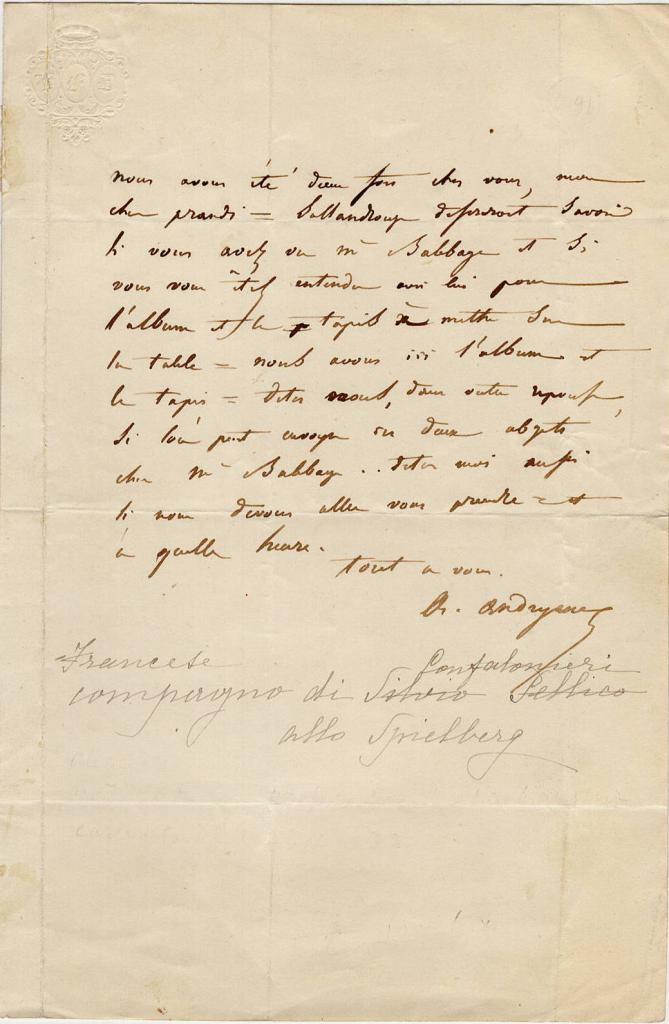 nous avons été deux fois chez vous, mon
cher prandi = Sallandrouze desireroit Savoir
Si vous avez vu mr Babbage et Si
vous vous êtes entendu avec lui pour
l'album et le tapis à mettre Sur
la table = nous avons ici l'album et
le tapis = dites nous, dans votre reponse,
Si l'on peut envoyer ces deux objets
chez mr Babbage .. dites moi aussi
Si nous devons aller vous prendre = et
à quelle heure.
tout a vous.
A. Andryane
Francese Confalonieri
compagno di Silvio Pellico
allo Spielberg